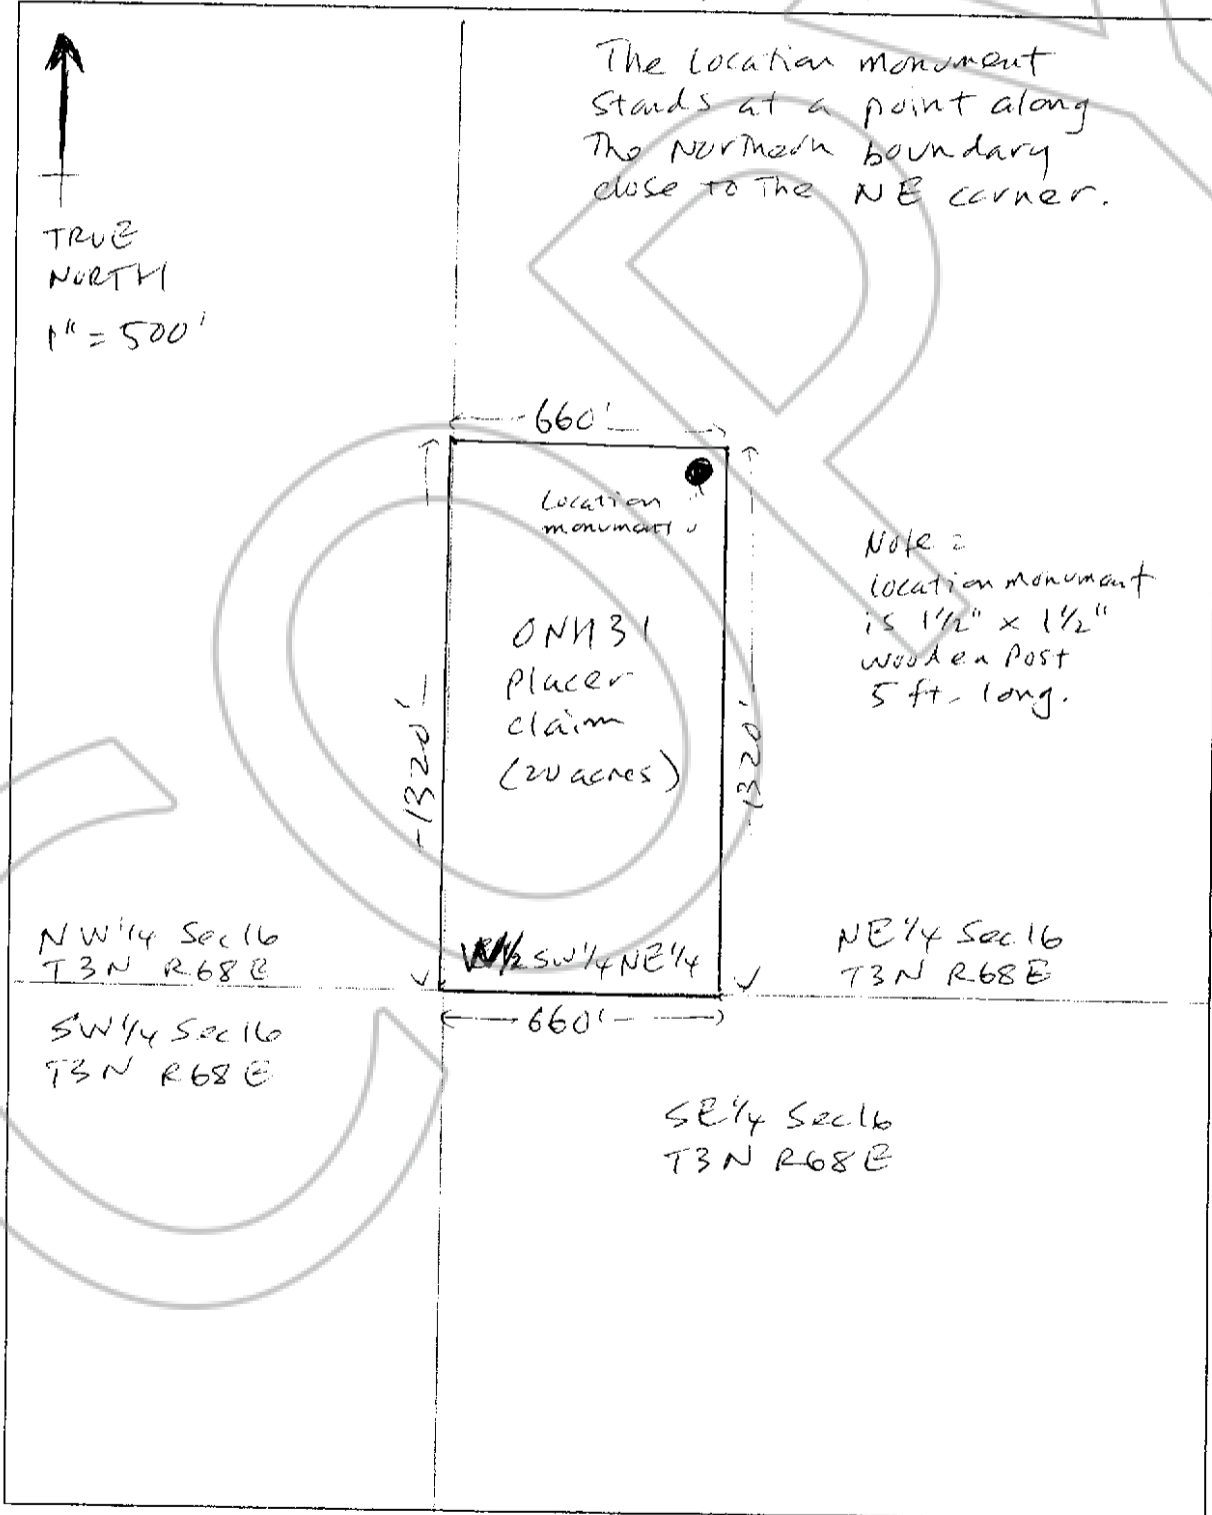 The Location monument
Stands at a point along
The Northern boundary
close to The NE corner.
TRUE
NORTH
1" = 500'
660'
Location
monument
Note =
location monument
is 1 1/2" x 1 1/2"
wooden Post
5 ft. long.
ONH31
Placer
claim
(20 acres)
1320'
1320'
W1/2 SW1/4 NE1/4
NW1/4 Sec 16
T3N R68E
NE1/4 Sec 16
T3N R68E
660'
SW1/4 Sec 16
T3N R68E
SE1/4 Sec 16
T3N R68E
COPY